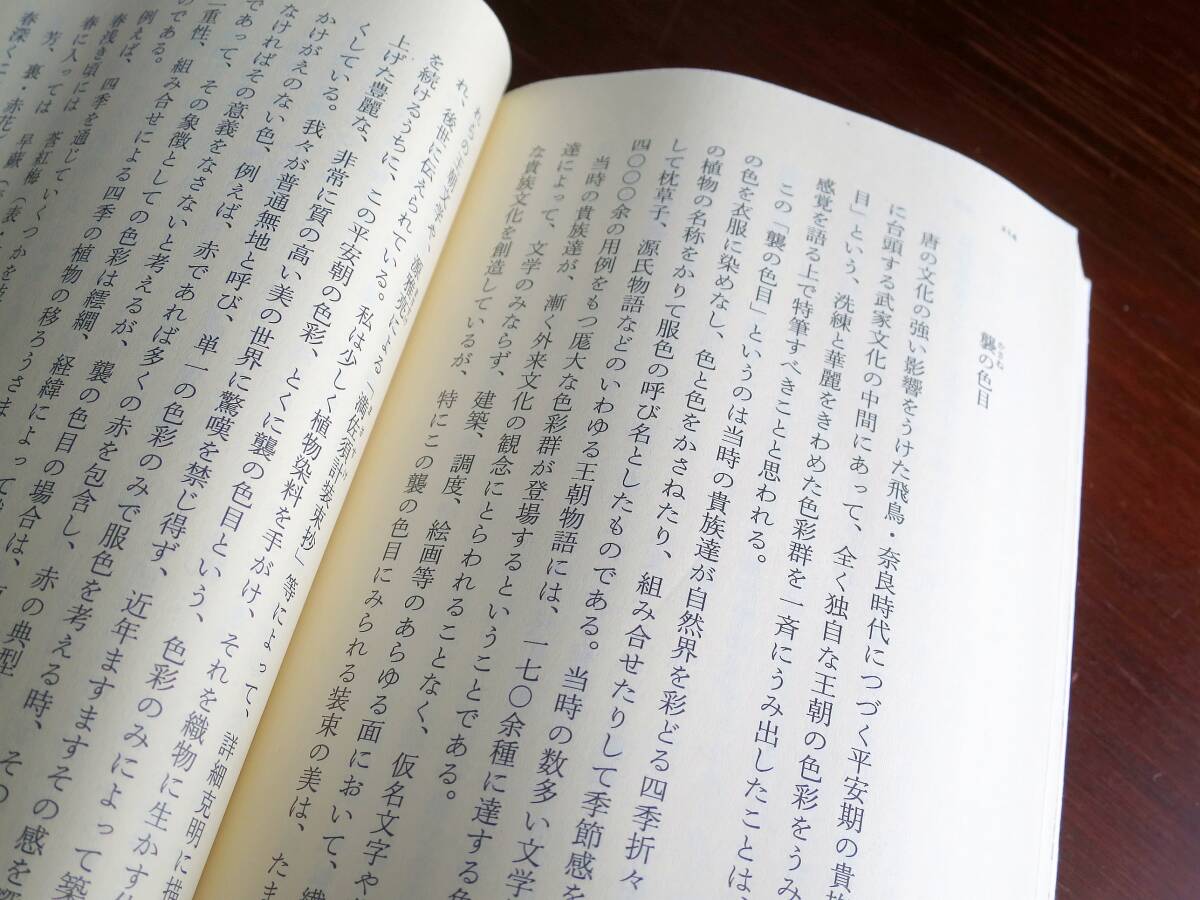 襲の色目
かさね
唐の文化の強い影響をうけた飛鳥・奈良時代につづく平安期の貴族
に台頭する武家文化の中間にあって、全く独自な王朝の色彩をうみ
目」という、洗練と華麗をきわめた色彩群を一斉にうみ出したことは、
感覚を語る上で特筆すべきことと思われる。
この「襲の色目」というのは当時の貴族達が自然界を彩どる四季折々
の色を衣服に染めなし、色と色をかさねたり、組み合せたりして季節感を
の植物の名称をかりて服色の呼び名としたものである。当時の数多い文学
して枕草子、源氏物語などのいわゆる王朝物語には、一七〇余種に達する色
四〇〇〇余の用例をもつ厖大な色彩群が登場するということである。
当時の貴族達が、漸く外来文化の観念にとらわれることなく、仮名文字や
達によって、文学のみならず、建築、調度、絵画等のあらゆる面において、繊
な貴族文化を創造しているが、特にこの襲の色目にみられる装束の美は、たま
れらの王朝文学や、源雅亮による「満佐須計装束抄」等によって、詳細克明に描
れ、後世に伝えられている。私は少しく植物染料を手がけ、それを織物に生かす仕
を続けるうちに、この平安朝の色彩、とくに襲の色目という、色彩のみによって築
上げた豊麗な、非常に質の高い美の世界に驚嘆を禁じ得ず、近年ますますその感を深
くしている。我々が普通無地と呼び、単一の色彩のみで服色を考える時、その
かけがえのない色、例えば、赤であれば多くの赤を包含し、赤の典型
なければその意義をなさないと考えるが、襲の色目の場合は、
であって、その象徴としての色彩は繧繝、経緯によって
一重性、組み合せによる四季の植物の移ろうさま
のである。
例えば、四季を通じていくつかを
春浅き頃には　莟紅梅
春に入っては　早蕨（表・
芳、裏・赤花
春深く